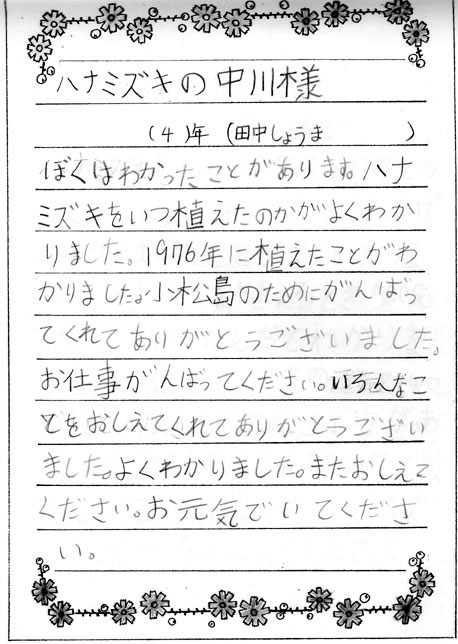 ハナミズキの中川様
(4)年 (田中しょうま)
ぼくはわかったことがあります。ハナ
ミズキをいつ植えたのかがよくわか
りました。1976年に植えたことがわ
かりました。小松島のためにがんばっ
てくれてありがとうございました。
お仕事がんばってください。いろんなこ
とをおしえてくれてありがとうござい
ました。よくわかりました。またおしえて
ください。お元気でいてくださ
い。